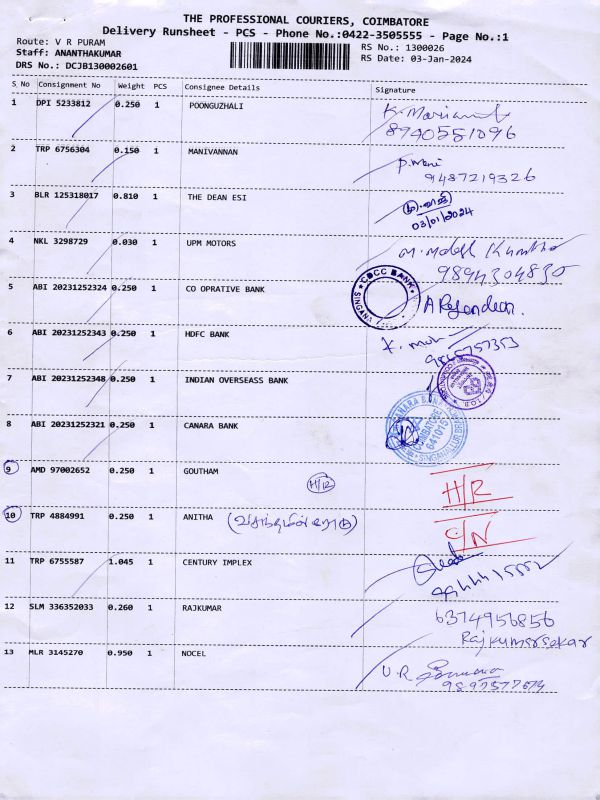 THE PROFESSIONAL COURIERS, COIMBATORE
Delivery Runsheet - PCS - Phone No.:0422-3505555 - Page No.:1
Route: V R PURAM
Staff: ANANTHAKUMAR
DRS No.: DCJB130002601
RS No.: 1300026
RS Date: 03-Jan-2024
S No Consignment No Weight PCS Consignee Details Signature
1 DPI 5233812 0.250 1 POONGUZHALI
8940581096
2 TRP 6756304 0.150 1 MANIVANNAN P. Mani
9487219326
3 BLR 125318017 0.810 1 THE DEAN ESI
03/01/2024
4 NKL 3298729 0.030 1 UPM MOTORS
9894304830
5 ABI 20231252324 0.250 1 CO OPRATIVE BANK
CDCC BANK
6 ABI 20231252343 0.250 1 HDFC BANK
7 ABI 20231252348 0.250 1 INDIAN OVERSEASS BANK
8 ABI 20231252321 0.250 1 CANARA BANK
CANARA BANK
COIMBATORE
641015
9 AMD 97002652 0.250 1 GOUTHAM H/R H/R
10 TRP 4884991 0.250 1 ANITHA
11 TRP 6755587 1.045 1 CENTURY IMPLEX
12 SLM 336352033 0.260 1 RAJKUMAR 6374956856
Rajkumarsekar
13 MLR 3145270 0.950 1 NOCEL